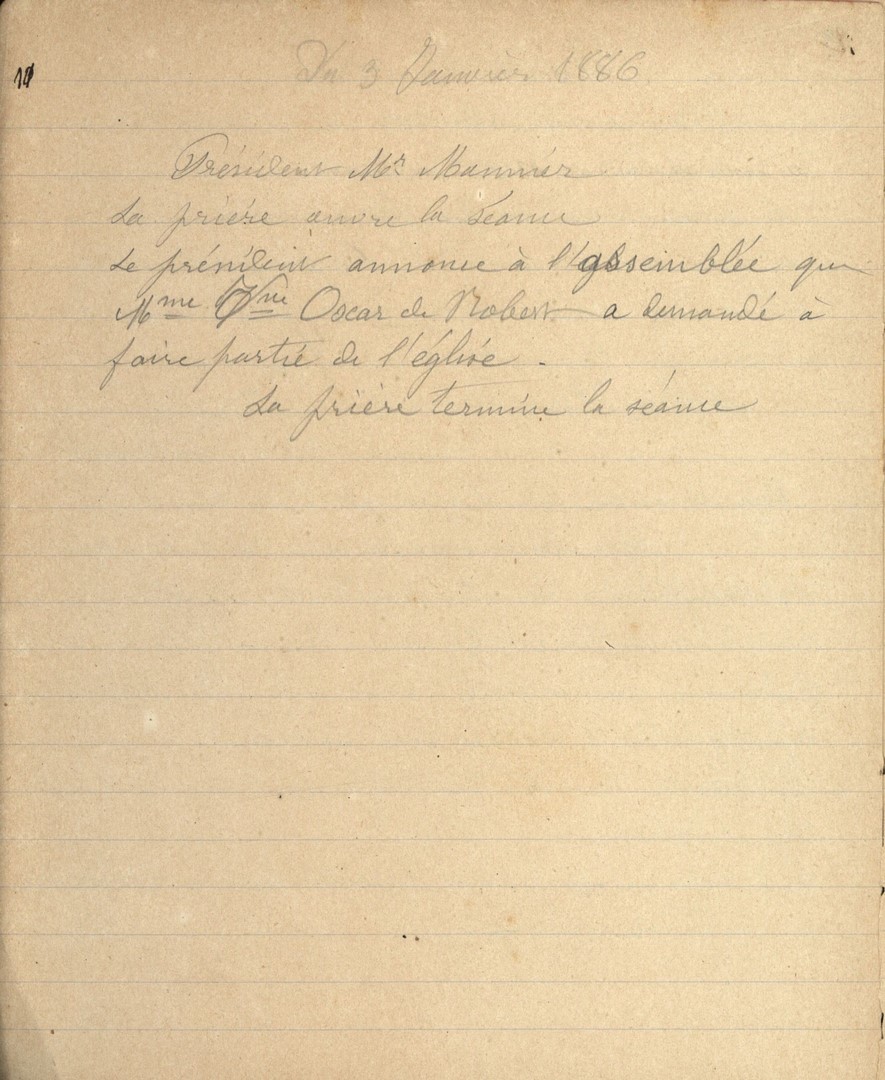 Du 3 Janvier 1886
Président Mr Mounier
La prière ouvre la séance
Le président annonce à l'assemblée que
Mme Vve Oscar de Robert a demandé à
faire partie de l'église.
La prière termine la séance